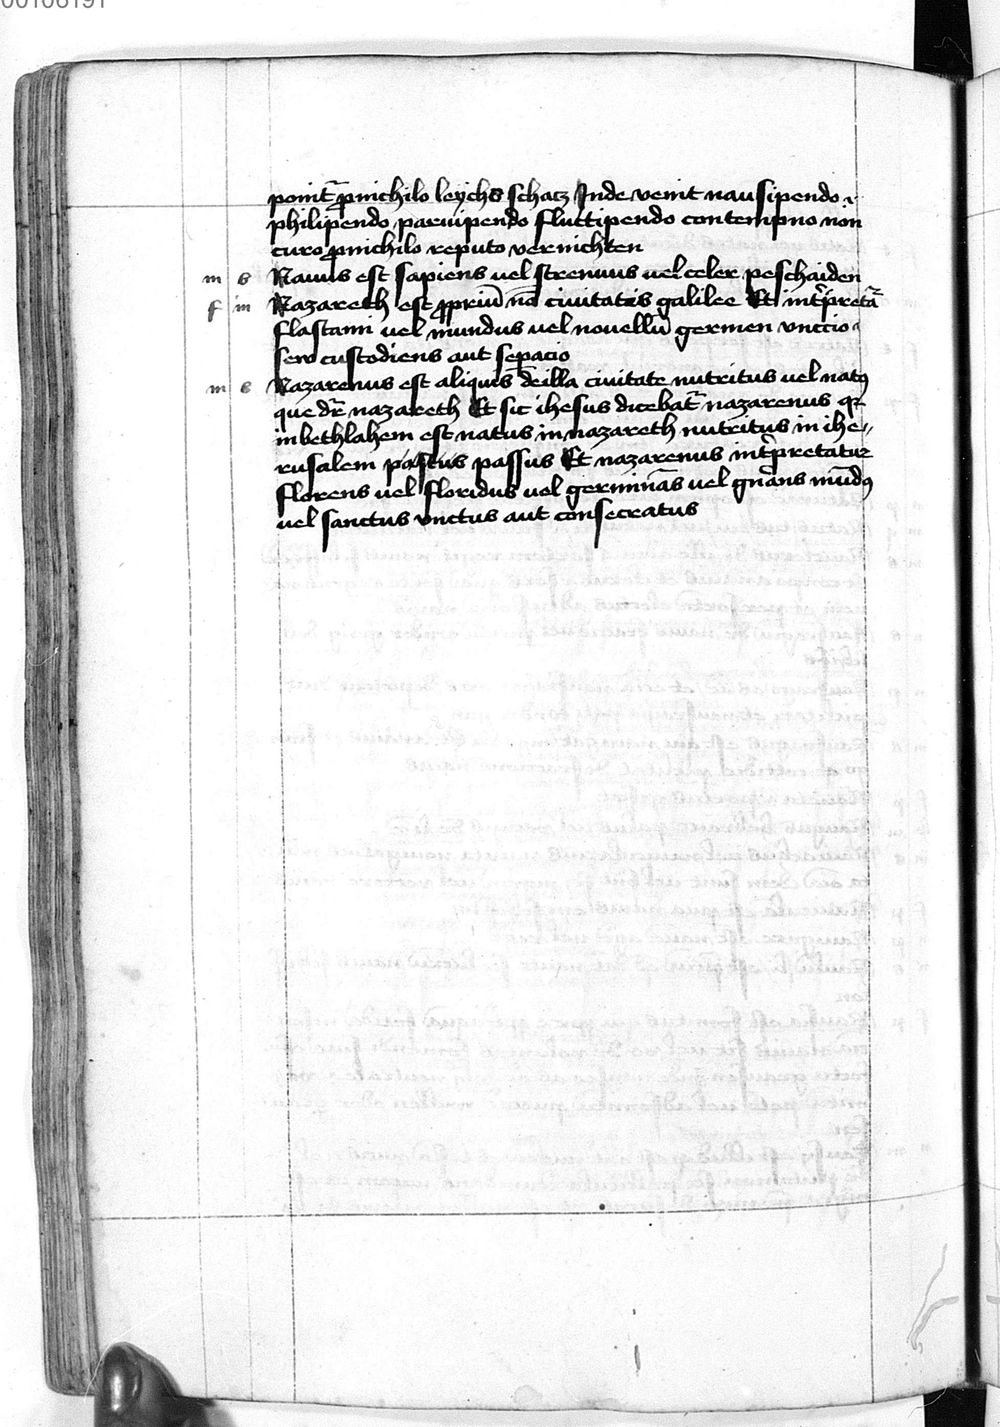 00106191
ponit᷑ ꝓ nichilo leychs schacz Inde venit nausipendo
philipendo paruipendo fluctipendo contempno non
curo ꝓ nichilo reputo vernichten
m s Nauus est sapiens uel strenuus uel celer peschaiden
f in Nazareth est ꝓpriū nō ciuitatis galilee Et int̉pretat᷑
flastami vel mundus vel nouellū germen vnctio
seu custodiens aut sepacio
m s Nazarenus est aliquis de illa ciuitate nutritus vel natꝰ
que dr̄ nazareth Et sic ihesus dicebat᷑ nazarenus qꝛ
in bethlahem est natus in nazareth nutritus in ihe⸗
rusalem pastus passus Et nazarenus int̉pretatur
florens uel floridus uol germinās vel gn̄ans mūdꝰ
uel sanctus vnctus aut consecratus